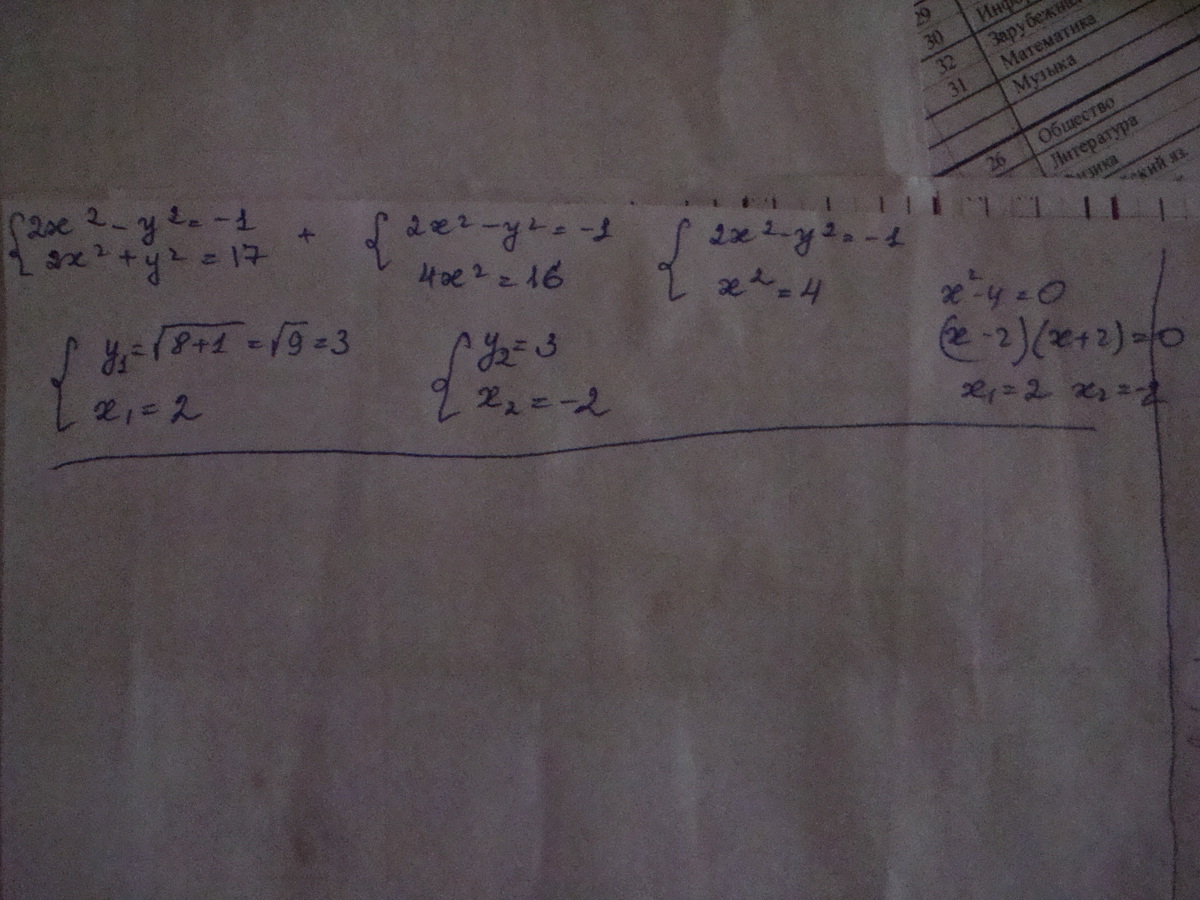 29
30 Зарубежная
32 Математика
31 Музыка
Общество
26 Литература
{2x² - y² = -1
2x² + y² = 17
+
{2x² - y² = -1
4x² = 16
{2x² - y² = -1
x² = 4
x² - 4 = 0
(x - 2)(x + 2) = 0
x₁ = 2 x₂ = -2
{y₁ = √8+1 = √9 = 3
x₁ = 2
{y₂ = 3
x₂ = -2